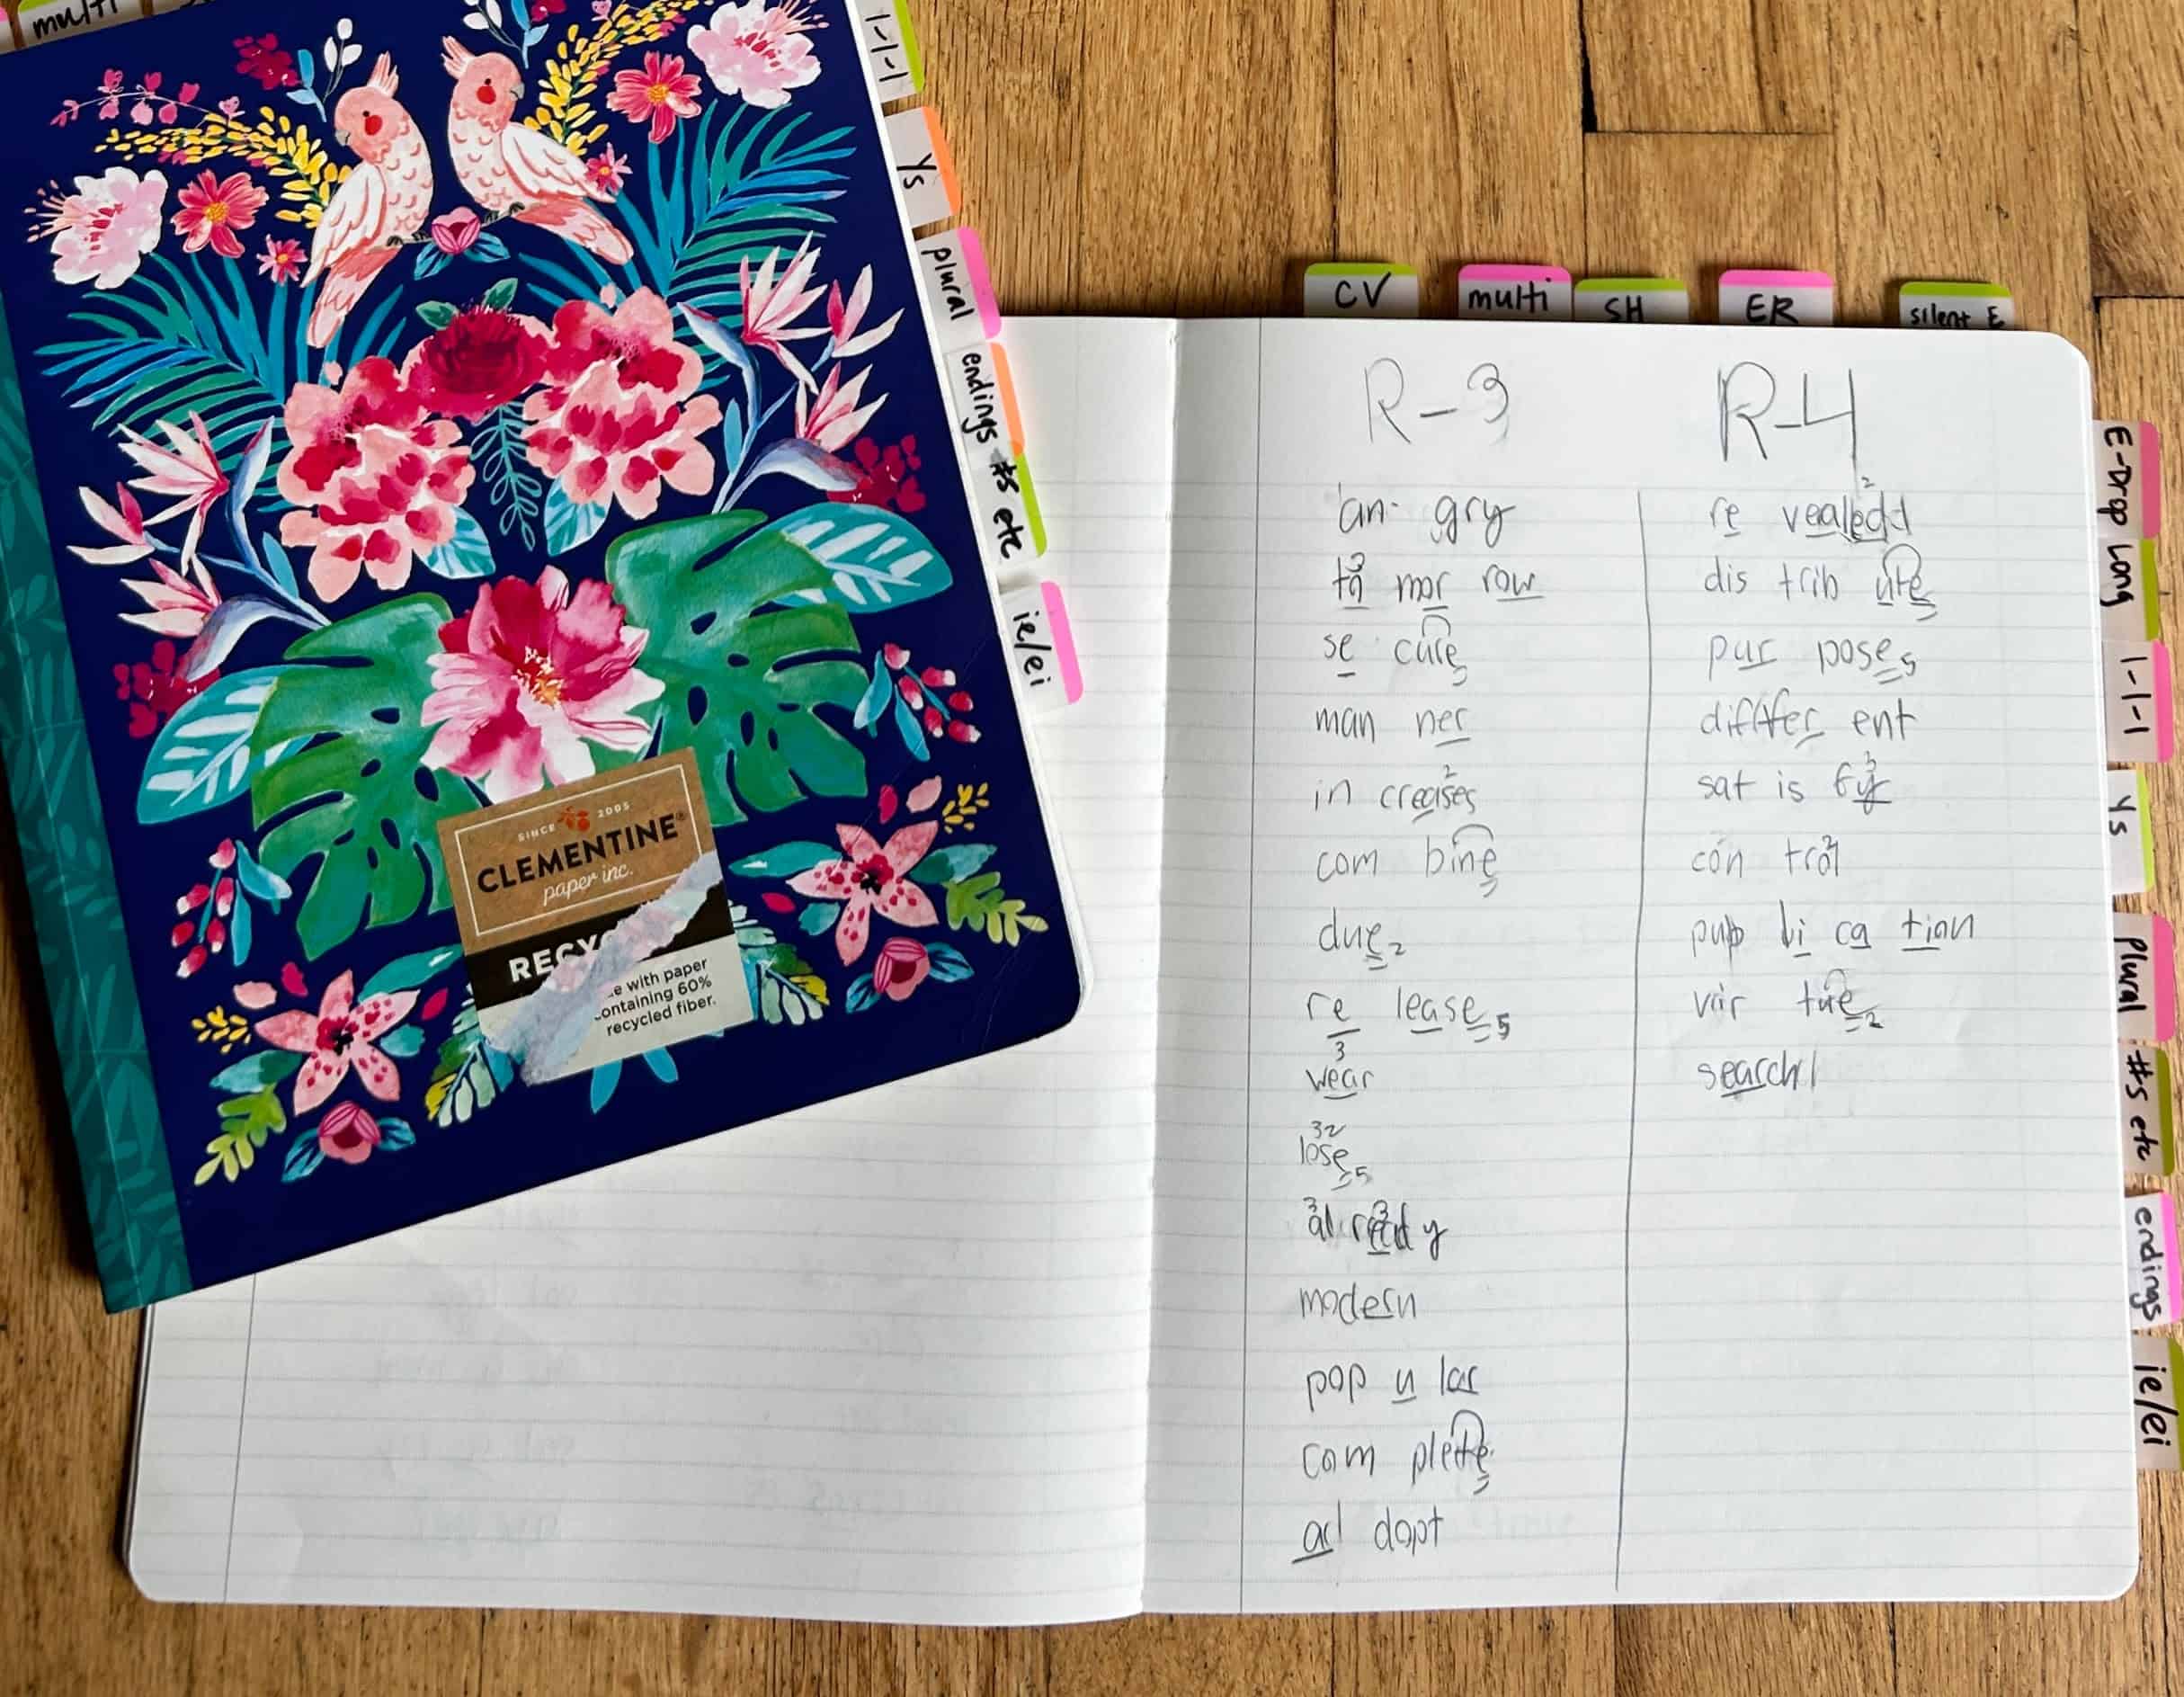 multi
1-1-1
Ys
plural
endings
#s etc
ie/ei
SINCE 2005
CLEMENTINE®
paper inc.
RECY
e with paper
ontaining 60%
recycled fiber.
CV
multi
SH
ER
silent E
E-Drop
Long
1-1-1
Ys
plural
#s etc
endings
ie/ei
R-3
an gry
3
to mor row
se cure 5
man ner
2
in creases
com bine 5
due 2
re lease 5
3
wear
3 2
lose 5
3 3
al read y
modern
pop u lar
com plete 5
ad dopt
R-4
2
re vealed
dis trib ute 5
pur pose 5
differ ent
3
sat is fy
2
con trol
pub li ca tion
vir tue 2
search